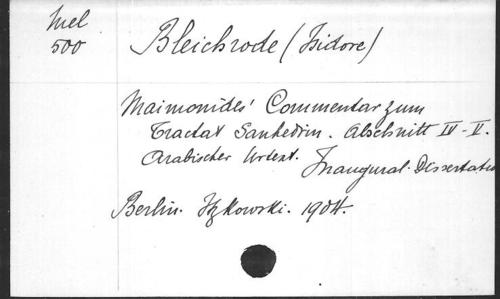 Mel
500
Bleichrode (Isidore)
Maimonides' Commentar zum
Tractat Sanhedrin. Abschnitt IV-V.
Arabischer Urtext. Inaugural-Dissertation
Berlin. Itzkowski. 1904.